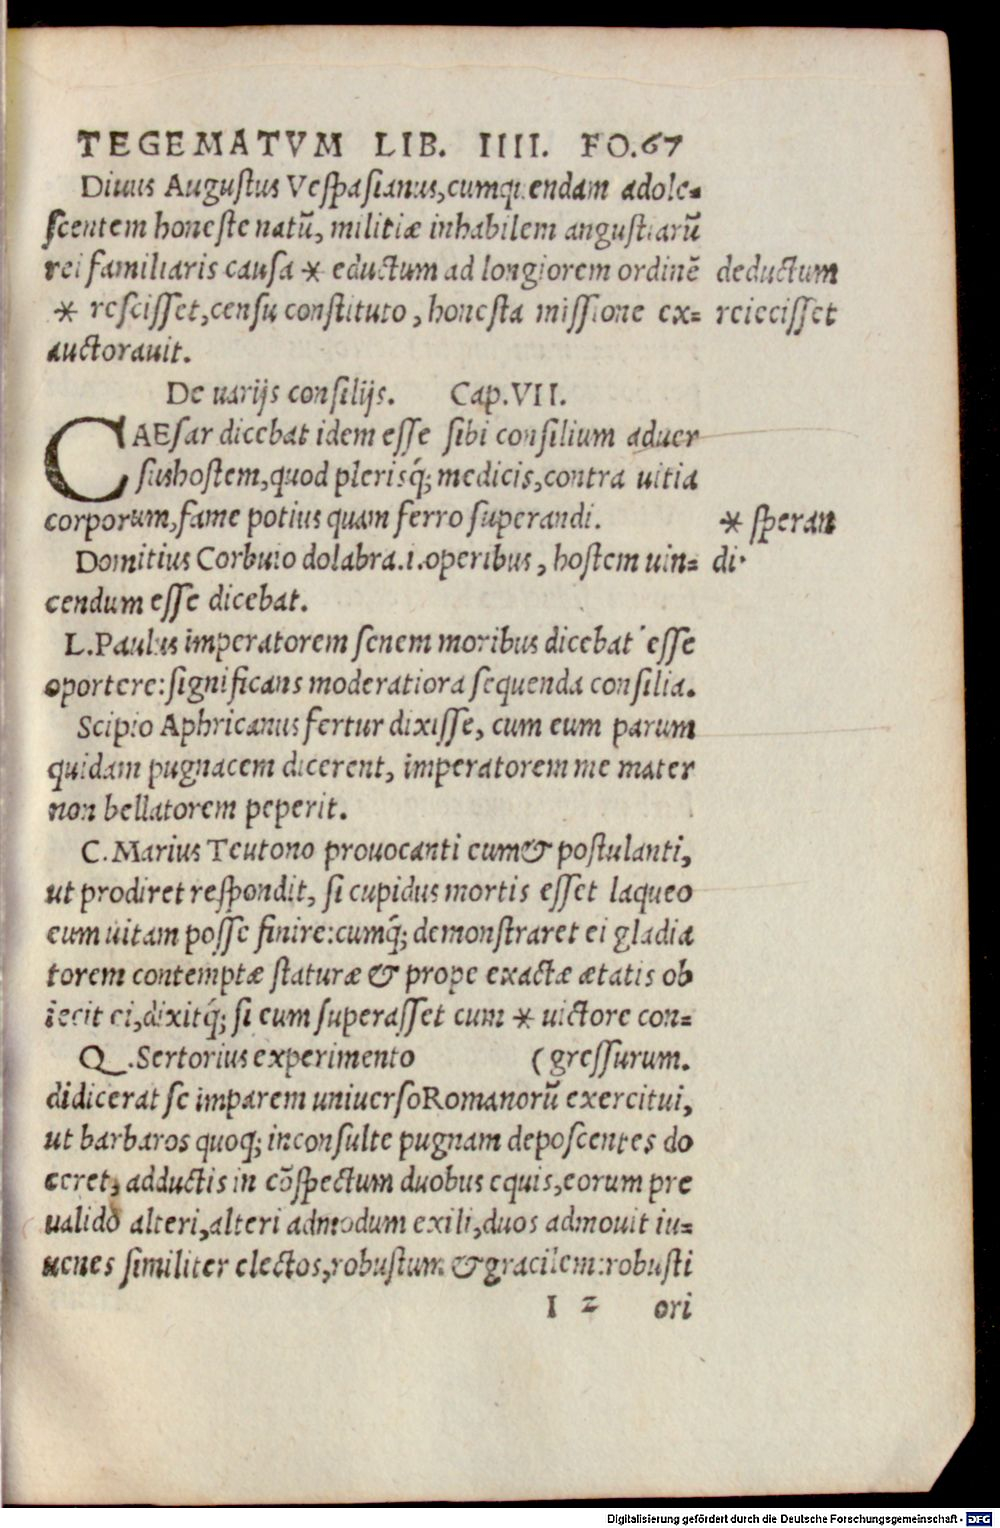 TEGEMATVM LIB. IIII. FO.67
Diuus Augustus Vespasianus,cumquendam adole-
scentem honeste natū, militiæ inhabilem angustiarū
rei familiaris causa * eductum ad longiorem ordinē deductum
* rescisset,censu constituto, honesta missione ex- reiecisset
auctorauit.
De uarijs consilijs. Cap.VII.
CAESar dicebat idem esse sibi consilium aduer
sushostem,quod plerisq́; medicis,contra uitia
corporum,fame potius quam ferro superandi. * speran
Domitius Corbulo dolabra.i.operibus, hostem uin- di·
cendum esse dicebat.
L.Paulus imperatorem senem moribus dicebat esse
oportere:significans moderatiora sequenda consilia.
Scipio Aphricanus fertur dixisse, cum eum parum
quidam pugnacem dicerent, imperatorem me mater
non bellatorem peperit.
C.Marius Teutono prouocanti eum& postulanti,
ut prodiret respondit, si cupidus mortis esset laqueo
eum uitam posse finire:cumq́; demonstraret ei gladia
torem contemptæ staturæ & prope exactæ ætatis ob
iecit ei,dixitq́; si eum superasset cum * uictore con-
Q.Sertorius experimento (gressurum.
didicerat se imparem uniuersoRomanorū exercitui,
ut barbaros quoq; inconsulte pugnam deposcentes do
ceret, adductis in cōspectum duobus equis,eorum pre
ualido alteri,alteri admodum exili,duos admouit iu-
uenes similiter electos,robustum &gracilem:robusti
I 2 ori
Digitalisierung gefördert durch die Deutsche Forschungsgemeinschaft - DFG